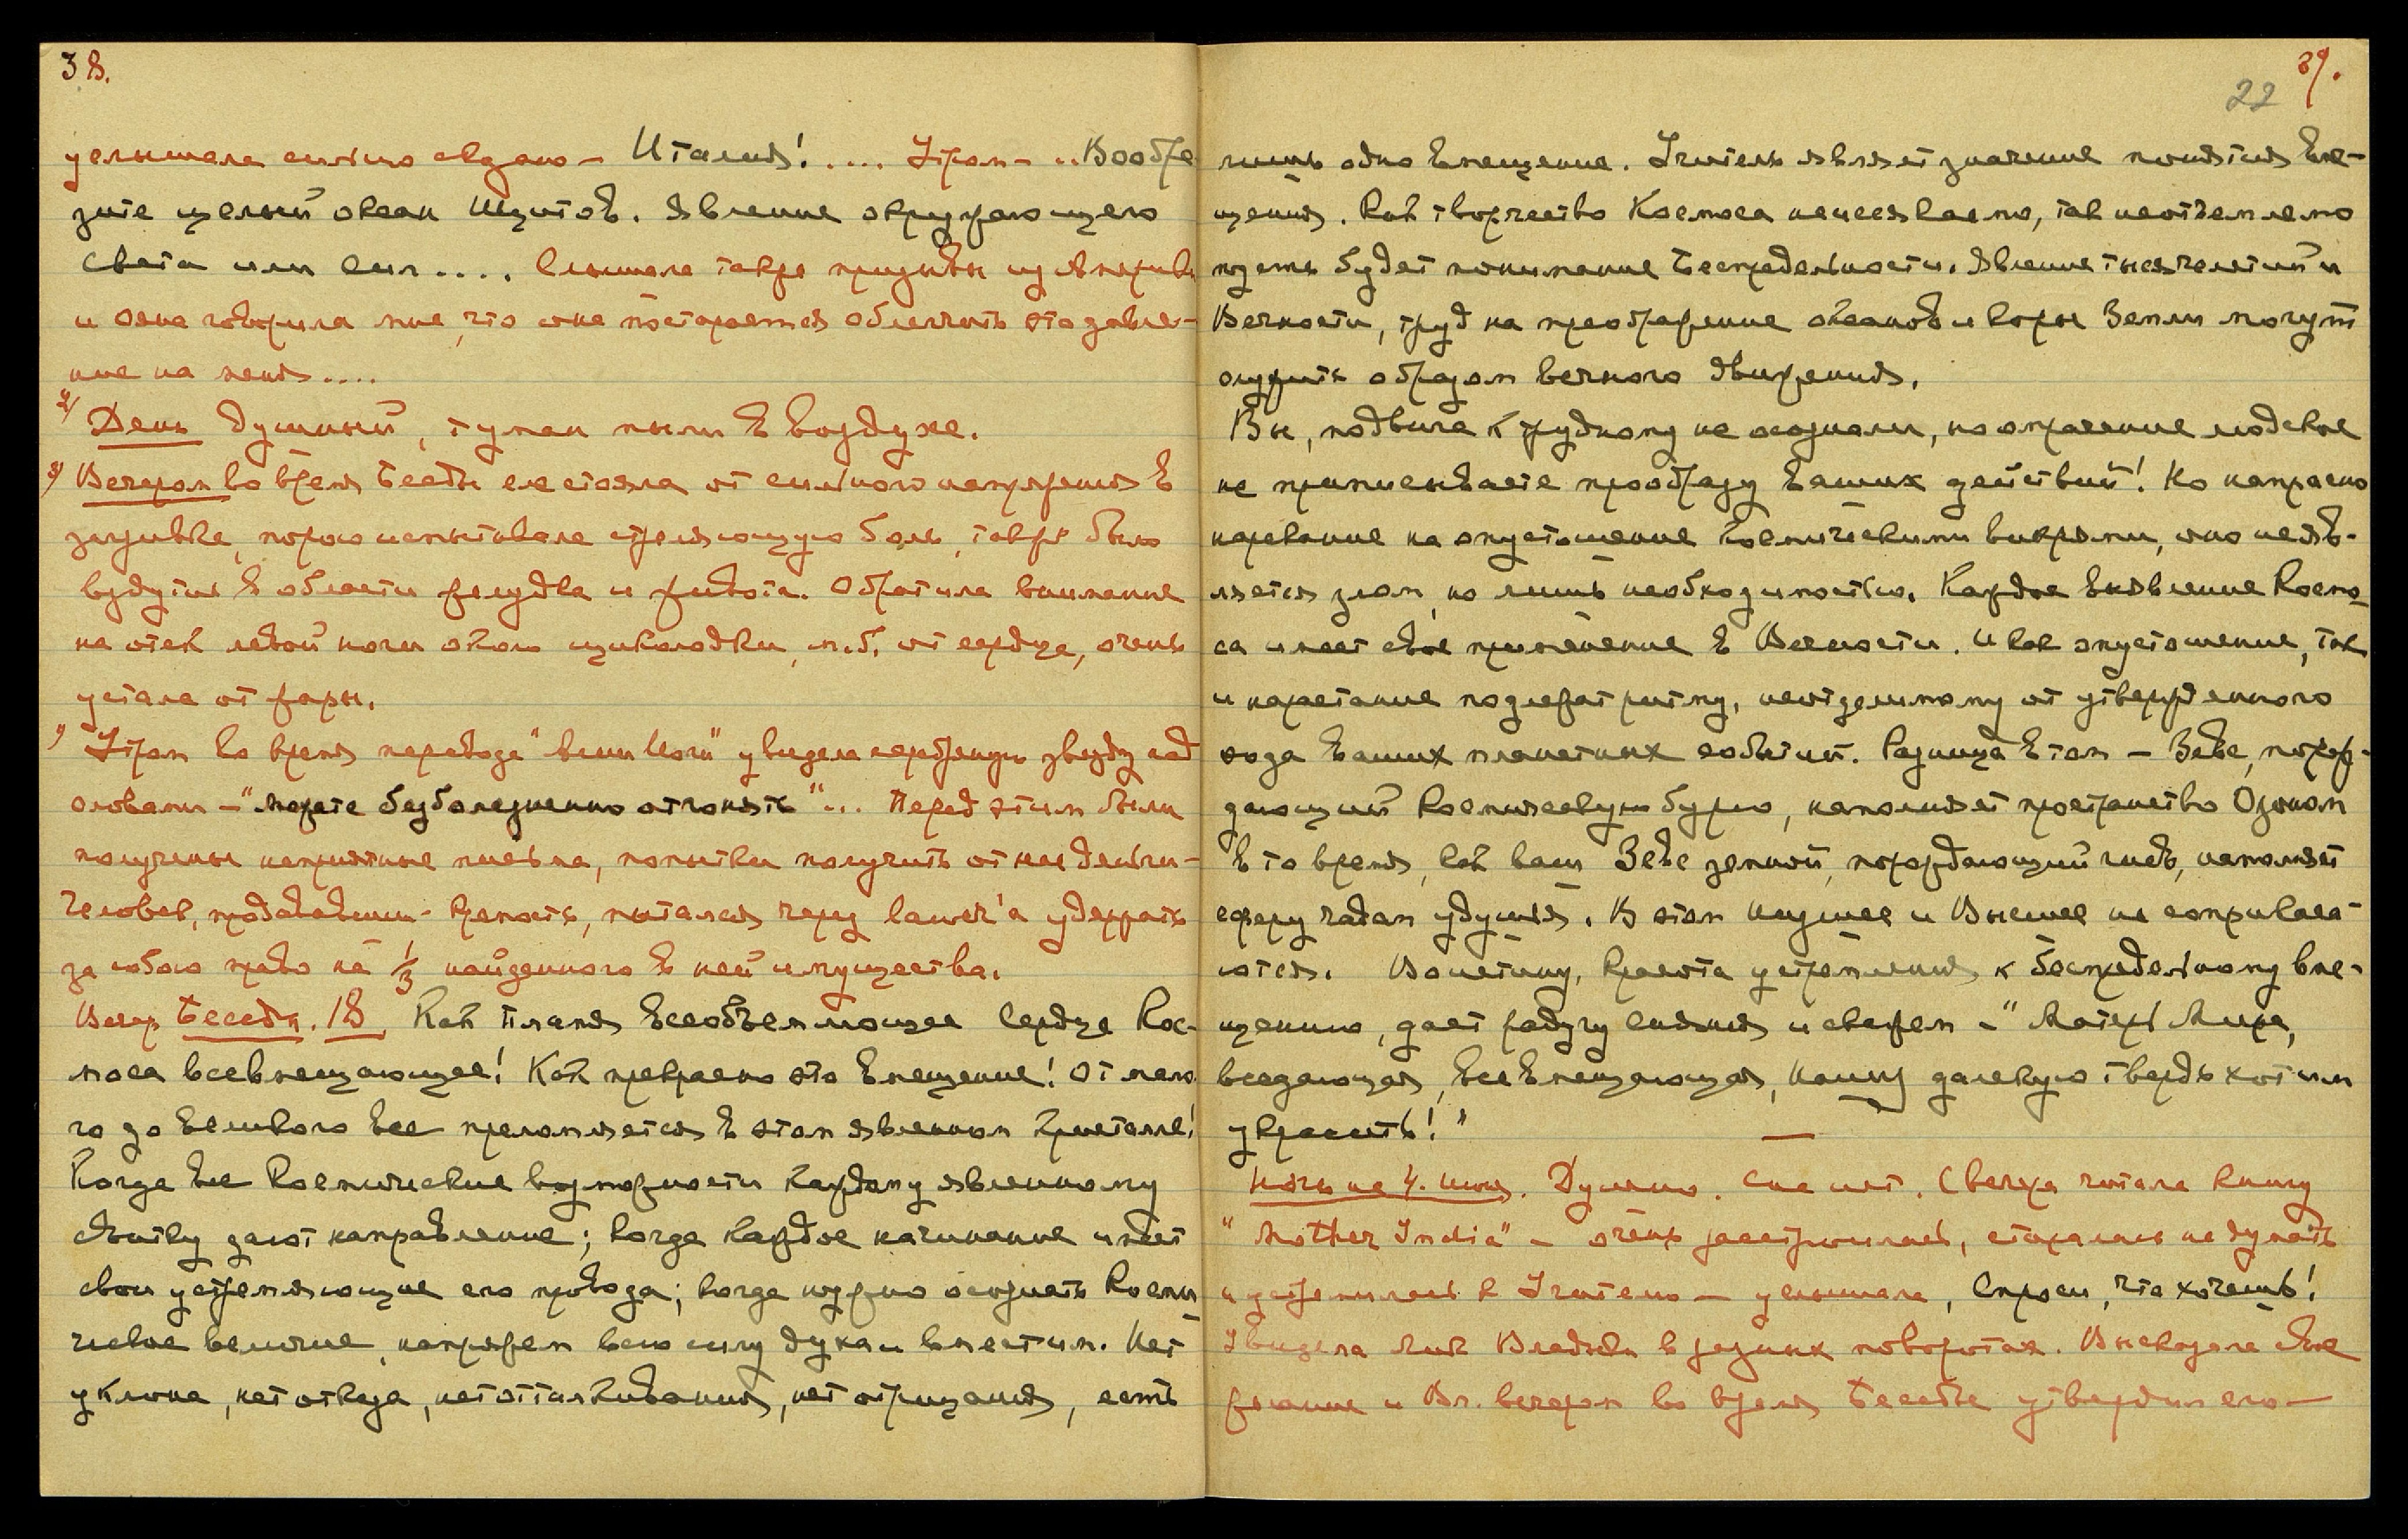 38.
услышала сильно сказано – Италия! .... Утром – "Вообра
зите целый океан Иезуитов. Явление окружающего
света или сил .... Слышала также призывы из Америки
и Ояна говорила мне, что она постарается облегчить это давле-
ние на меня ....
2/ День душный, туман пыли в воздухе.
3/ Вечером во время Беседы еле стояла от сильного напряжения в
затылке, порою испытывала стреляющую боль, также было
вздутие в области желудка и живота. Обратила внимание
на отек левой ноги около щиколодки, м.б. от сердца, очень
устала от жары.
Утром во время перевода "Велик Иога" увидела серебряную звезду над
словами – "можете безболезненно отгонять" ... Перед этим были
получены неприятные письма, попытки получить от нас деньги –
Человек, продававший – крепость, пытался через lawyer'а удержать
за собою право на 1/3 найденного в ней имущества.
Вечер Беседы. 18. Как пламя всеобъемлющее Сердце Кос-
моса всевмещающее! Как прекрасно это вмещение! От мало-
го до великого все преломляется в этом явленном Кристалле!
Когда все Космические возможности каждому явленному
сдвигу дают направление; когда каждое начинание имеет
свои устремляющие его провода; когда нужно осознать Косми
ческое величие, напряжем всю силу духа и вместим. Нет
уклона, нет отказа, нет отталкивания, нет отрицания, есть
39.
22
лишь одно вмещение. Учитель являет значение понятия вме-
щения. Как творчество Космоса неиссякаемо, так неотъемлемо
людям будет понимание Беспредельности. Явление тысячелетий и
Вечности, труд на преображение океанов и коры Земли могут
служить образом вечного движения.
Вы, подвига к трудному не осознали, но опасение людское
не приписывайте прообразу ваших действий! Но напрасно
нарекание на опустошение космическими вихрями, оно не яв-
ляется злом, но лишь необходимостью. Каждое выявление Космо
са имеет свое применение в Вечности. И как опустошение, так
и нарастание подлежат ритму, неотделимому от утвержденного
хода ваших планетных событий. Разница в том – Зевс, порож-
дающий Космическую бурю, наполняет пространство Озоном
в то время, как ваш Зевс земной, порождающий гнев, наполняет
сферу чадом удушья. В этом Низшее и Высшее не соприкаса-
ются. Воистину, красота устремления к беспредельному вме-
щению, дает радугу сияния и скажем – "Матерь Мира,
вседающая, всевмещающая, Нашу далекую твердь хотим
украсить!"
Ночь на 4. Июня. Душно. Сна нет. С вечера читала книгу
"Mother India" – очень расстроилась, старалась не думать
и устремилась к Учителю – услышала, Спроси, что хочешь!
Увидела Лик Владыки в разных поворотах. Высказала свое
желание и Вл. вечером во время Беседы утвердил его –